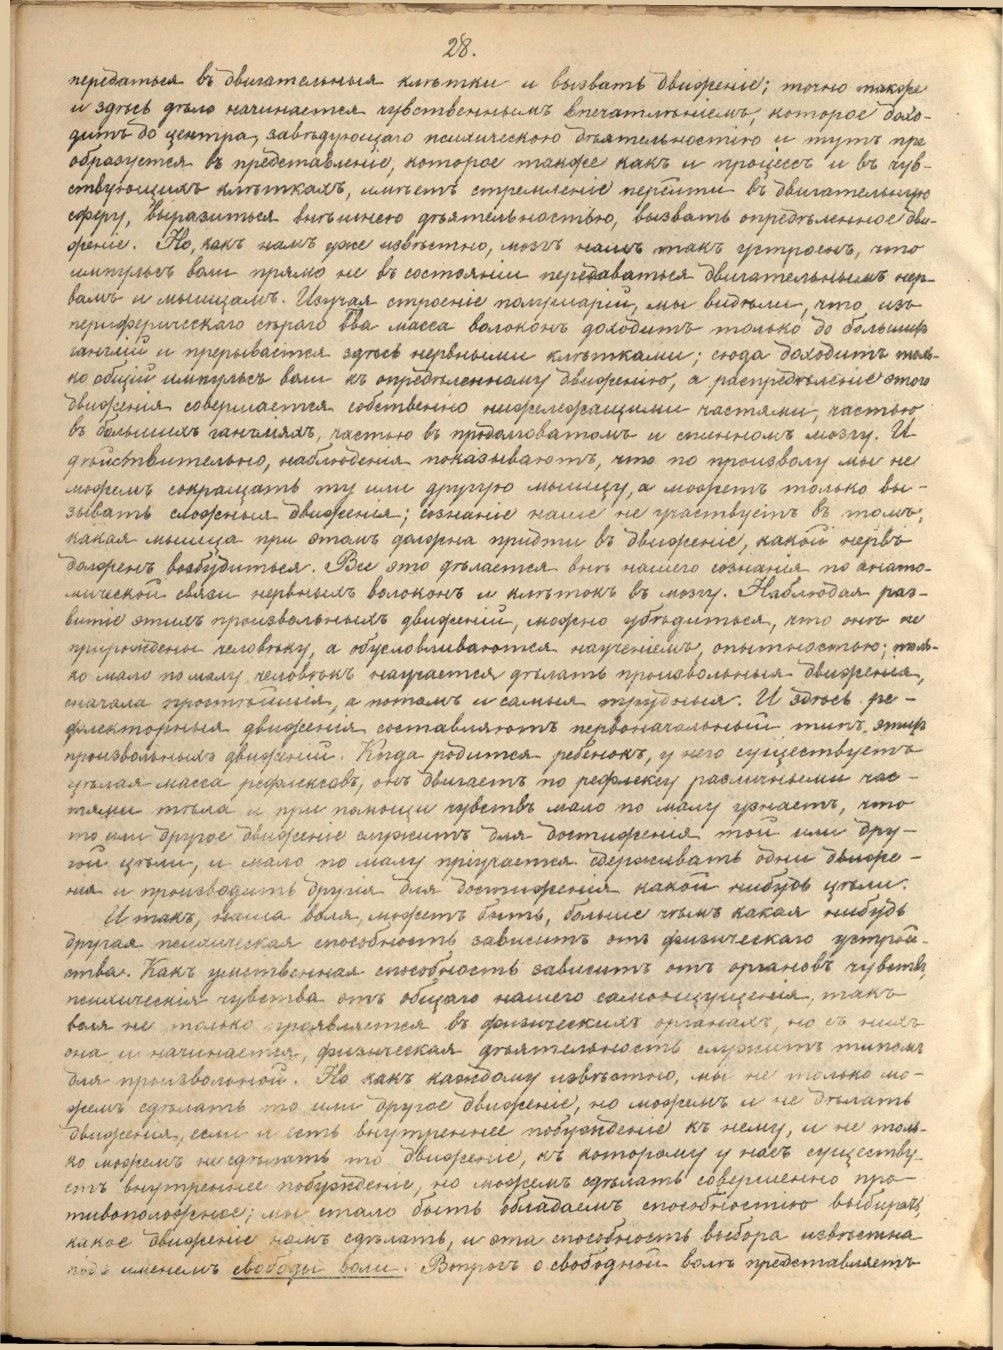 28.
передаться въ двигательныя клѣтки и вызвать движеніе; точно также
и здѣсь дѣло начинается чувственнымъ впечатлѣніемъ, которое дохо-
дитъ до центра, завѣдующаго психическою дѣятельностію и тутъ пре
образуется въ представленіе, которое также какъ и процессъ и въ чув-
ствующихъ клѣткахъ, имѣетъ стремленіе перейти въ двигательную
сферу, выразиться внѣшнею дѣятельностію, вызвать опредѣленное дви-
женіе. Но, какъ намъ уже извѣстно, мозгъ нашъ такъ устроенъ, что
импульсъ воли прямо не въ состояніи передаваться двигательнымъ нер-
вамъ и мышцамъ. Изучая строеніе полушарій, мы видѣли, что изъ
периферическаго сѣраго в-ва масса волоконъ доходитъ только до большихъ
ганглій и прерывается здѣсь нервными клѣтками; сюда доходитъ толь-
ко общій импульсъ воли къ опредѣленному движенію, а распредѣленіе этого
движенія совершается собственно нижележащими частями, частью
въ большихъ гангліяхъ, частью въ продолговатомъ и спинномъ мозгу. И
дѣйствительно, наблюденія показываютъ, что по произволу мы не
можемъ сокращать ту или другую мышцу, а можетъ только вы-
зывать сложныя движенія; сознаніе наше не участвуетъ въ томъ,
какая мышца при этомъ должна придти въ движеніе, какой нервъ
долженъ возбудиться. Все это дѣлается внѣ нашего сознанія по анато-
мической связи нервныхъ волоконъ и клѣтокъ въ мозгу. Наблюдая раз-
витіе этихъ произвольныхъ движеній, можно убѣдиться, что онѣ не
прирождены человѣку, а обусловливаются наученіемъ, опытностью; толь-
ко мало по малу человѣкъ научается дѣлать произвольныя движенія,
сначала простѣйшія, а потомъ и самыя трудныя. И здѣсь ре-
флекторныя движенія составляютъ первоначальный типъ этихъ
произвольныхъ движеній. Когда родится ребенокъ, у него существуетъ
цѣлая масса рефлексовъ, онъ двигаетъ по рефлексу различными час-
тями тѣла и при помощи чувствъ мало по малу узнаетъ, что
то или другое движеніе служитъ для достиженія той или дру-
гой цѣли, и мало по малу пріучается сдерживать одни движе-
нія и производить другія для достиженія какой нибудь цѣли.
Итакъ, наша воля, можетъ быть, больше чѣмъ какая нибудь
другая психическая способность зависитъ отъ физическаго устрой-
ства. Какъ умственная способность зависитъ отъ органовъ чувствъ,
психическія чувства отъ общаго нашего самоощущенія, такъ
воля не только проявляется въ физическихъ органахъ, но съ нихъ
она и начинается, физическая дѣятельность служитъ типомъ
для произвольной. Но какъ каждому извѣстно, мы не только мо-
жемъ сдѣлать то или другое движеніе, но можемъ и не дѣлать
движенія, если и есть внутреннее побужденіе къ нему, и не толь-
ко можемъ не сдѣлать то движеніе, къ которому у насъ существу-
етъ внутреннее побужденіе, но можемъ сдѣлать совершенно про-
тивоположное; мы стало быть обладаемъ способностію выбирать,
какое движеніе намъ сдѣлать, и эта способность выбора извѣстна
подъ именемъ свободы воли. Вопросъ о свободной волѣ представляетъ